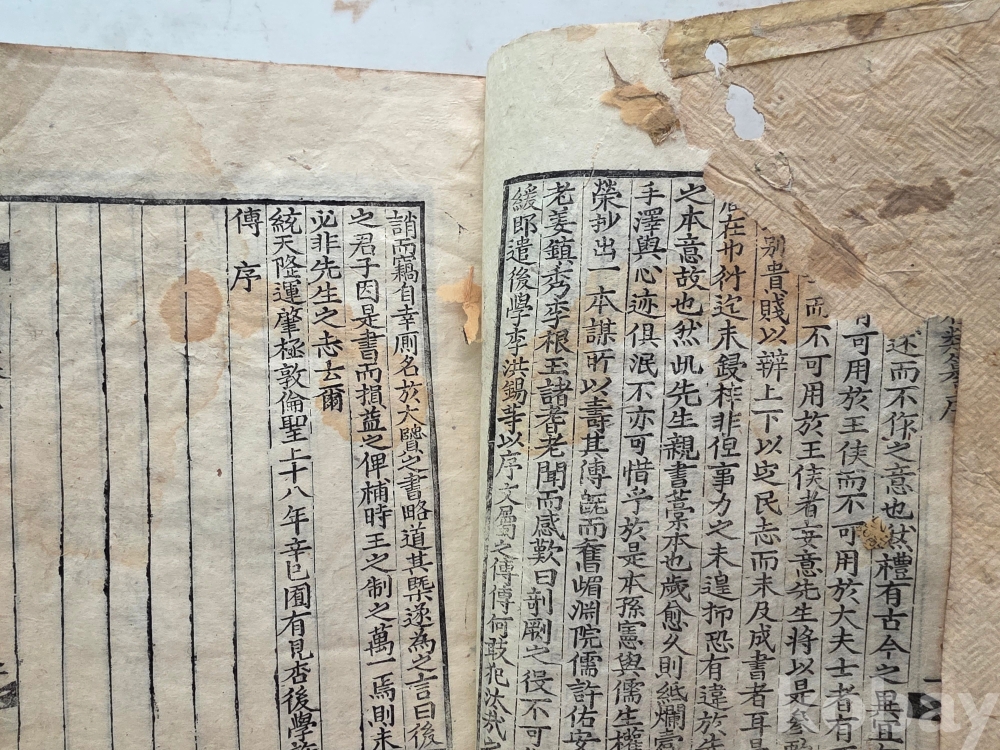 述而不作之意也然禮有古今之異且
可用於王侯而不可用於大夫士者有
而不可用於王侯者妄意先生將以是參
別貴賤以辨上下以定民志而未及成書者耳
在巾衍迄未鋟梓非但事力之未遑抑恐有違於先
之本意故也然此先生親書藁本也歲愈久則紙爛
手澤與心迹俱泯不亦可惜乎於是本孫憲與儒生權
榮抄出一本謀所以壽其傳旣而舊嵋淵院儒許佑安
老姜鎭秀李根玉諸耆老聞而感歎曰剞劂之役不可
緩卽遣後學李洪錫等以序文屬之傅傅何敢犯汰哉之
誚而竊自幸厠名於大賢之書略道其槩遂為之言曰後
之君子因是書而損益之俾補時王之制之萬一焉則未
必非先生之志云爾
統天隆運肇極敦倫聖上十八年辛巳圉有見杏後學
傅序